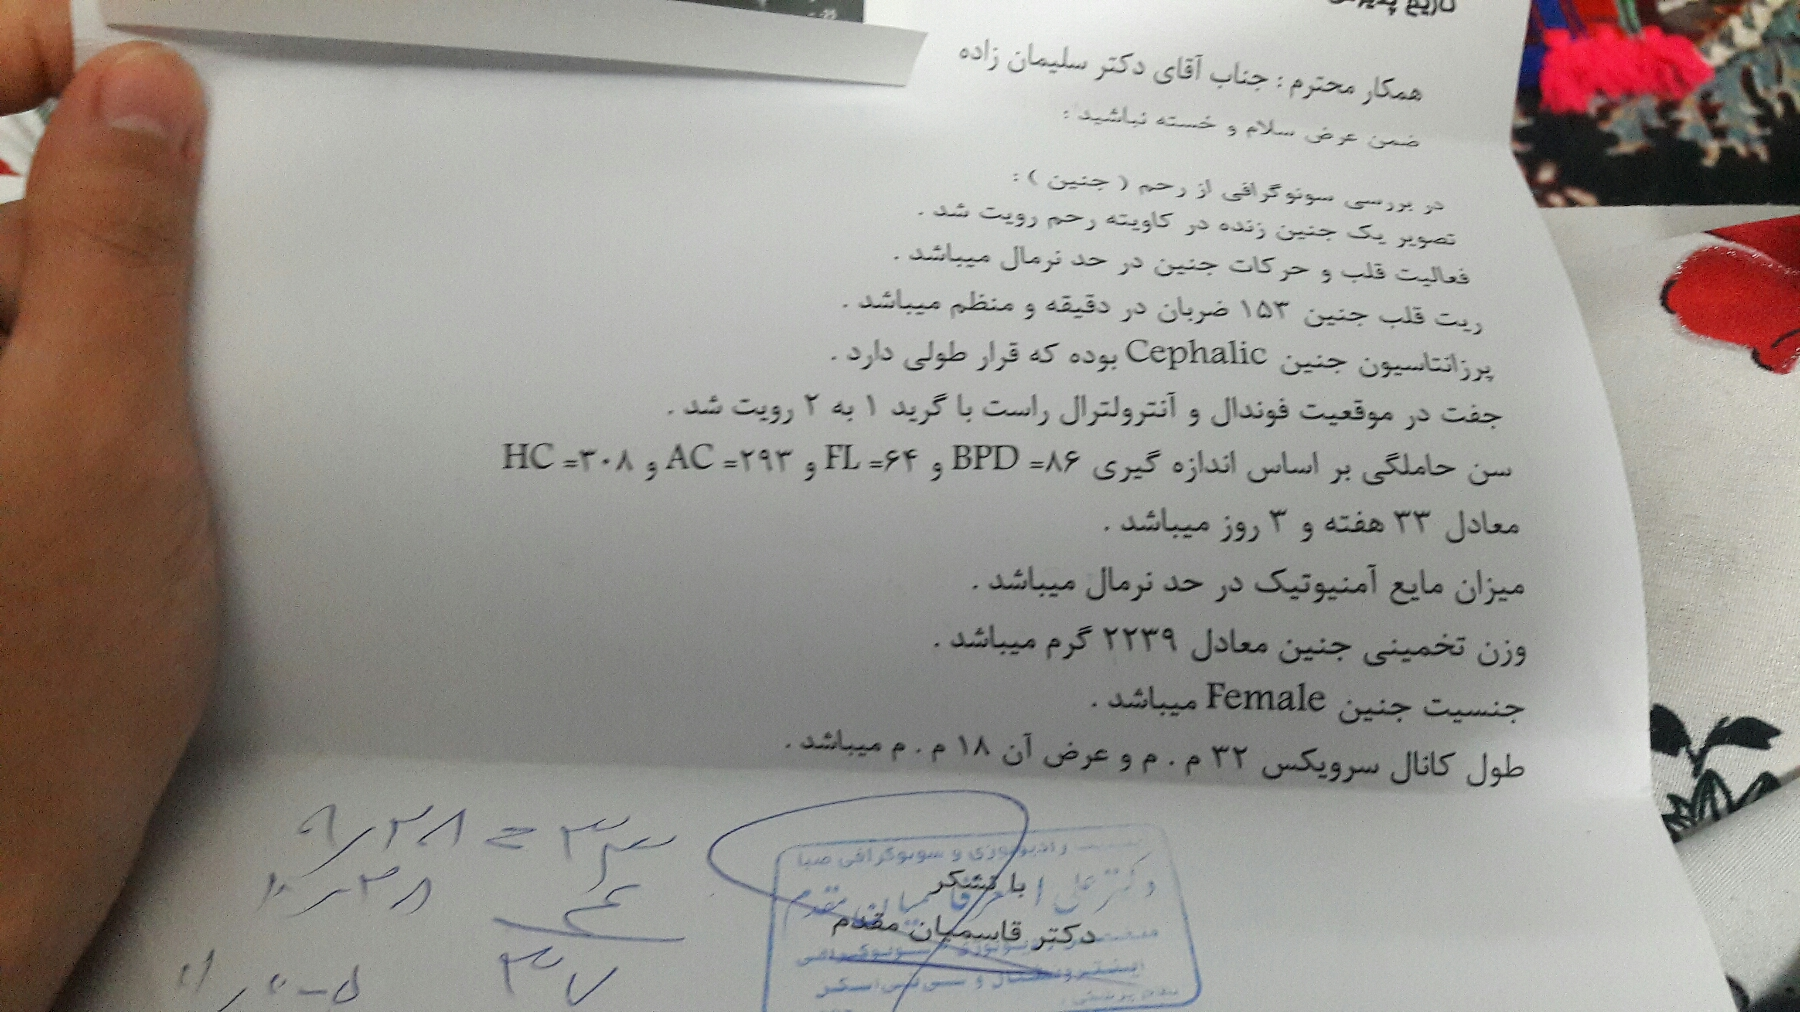 تاریخ پذیرش
همکار محترم : جناب آقای دکتر سلیمان زاده
ضمن عرض سلام و خسته نباشید :
در بررسی سونوگرافی از رحم ( جنین ) :
تصویر یک جنین زنده در کاویته رحم رویت شد .
فعالیت قلب و حرکات جنین در حد نرمال میباشد .
ریت قلب جنین ۱۵۳ ضربان در دقیقه و منظم میباشد .
پرزانتاسیون جنین Cephalic بوده که قرار طولی دارد .
جفت در موقعیت فوندال و آنترولترال راست با گرید ۱ به ۲ رویت شد .
سن حاملگی بر اساس اندازه گیری BPD =۸۶ و FL =۶۴ و AC =۲۹۳ و HC =۳۰۸
معادل ۳۳ هفته و ۳ روز میباشد .
میزان مایع آمنیوتیک در حد نرمال میباشد .
وزن تخمینی جنین معادل ۲۲۳۹ گرم میباشد .
جنسیت جنین Female میباشد .
طول کانال سرویکس ۳۲ م . م و عرض آن ۱۸ م . م میباشد .
رادیولوژی و سونوگرافی صبا
با تشکر
دکتر قاسمیان مقدم
۹/۲۸ = ۳۳
۱۰/۲۸ ۴
۳۷